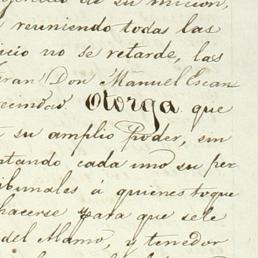 de su mision,
reuniendo todas las
icio no se retarde, las
eran Don Manuel Escan
vecindad. Otorga que
su amplio poder, sin
ntando cada uno su per
ibunales á quienes toque
hacerse para que se le
del Alamo, y tenedor